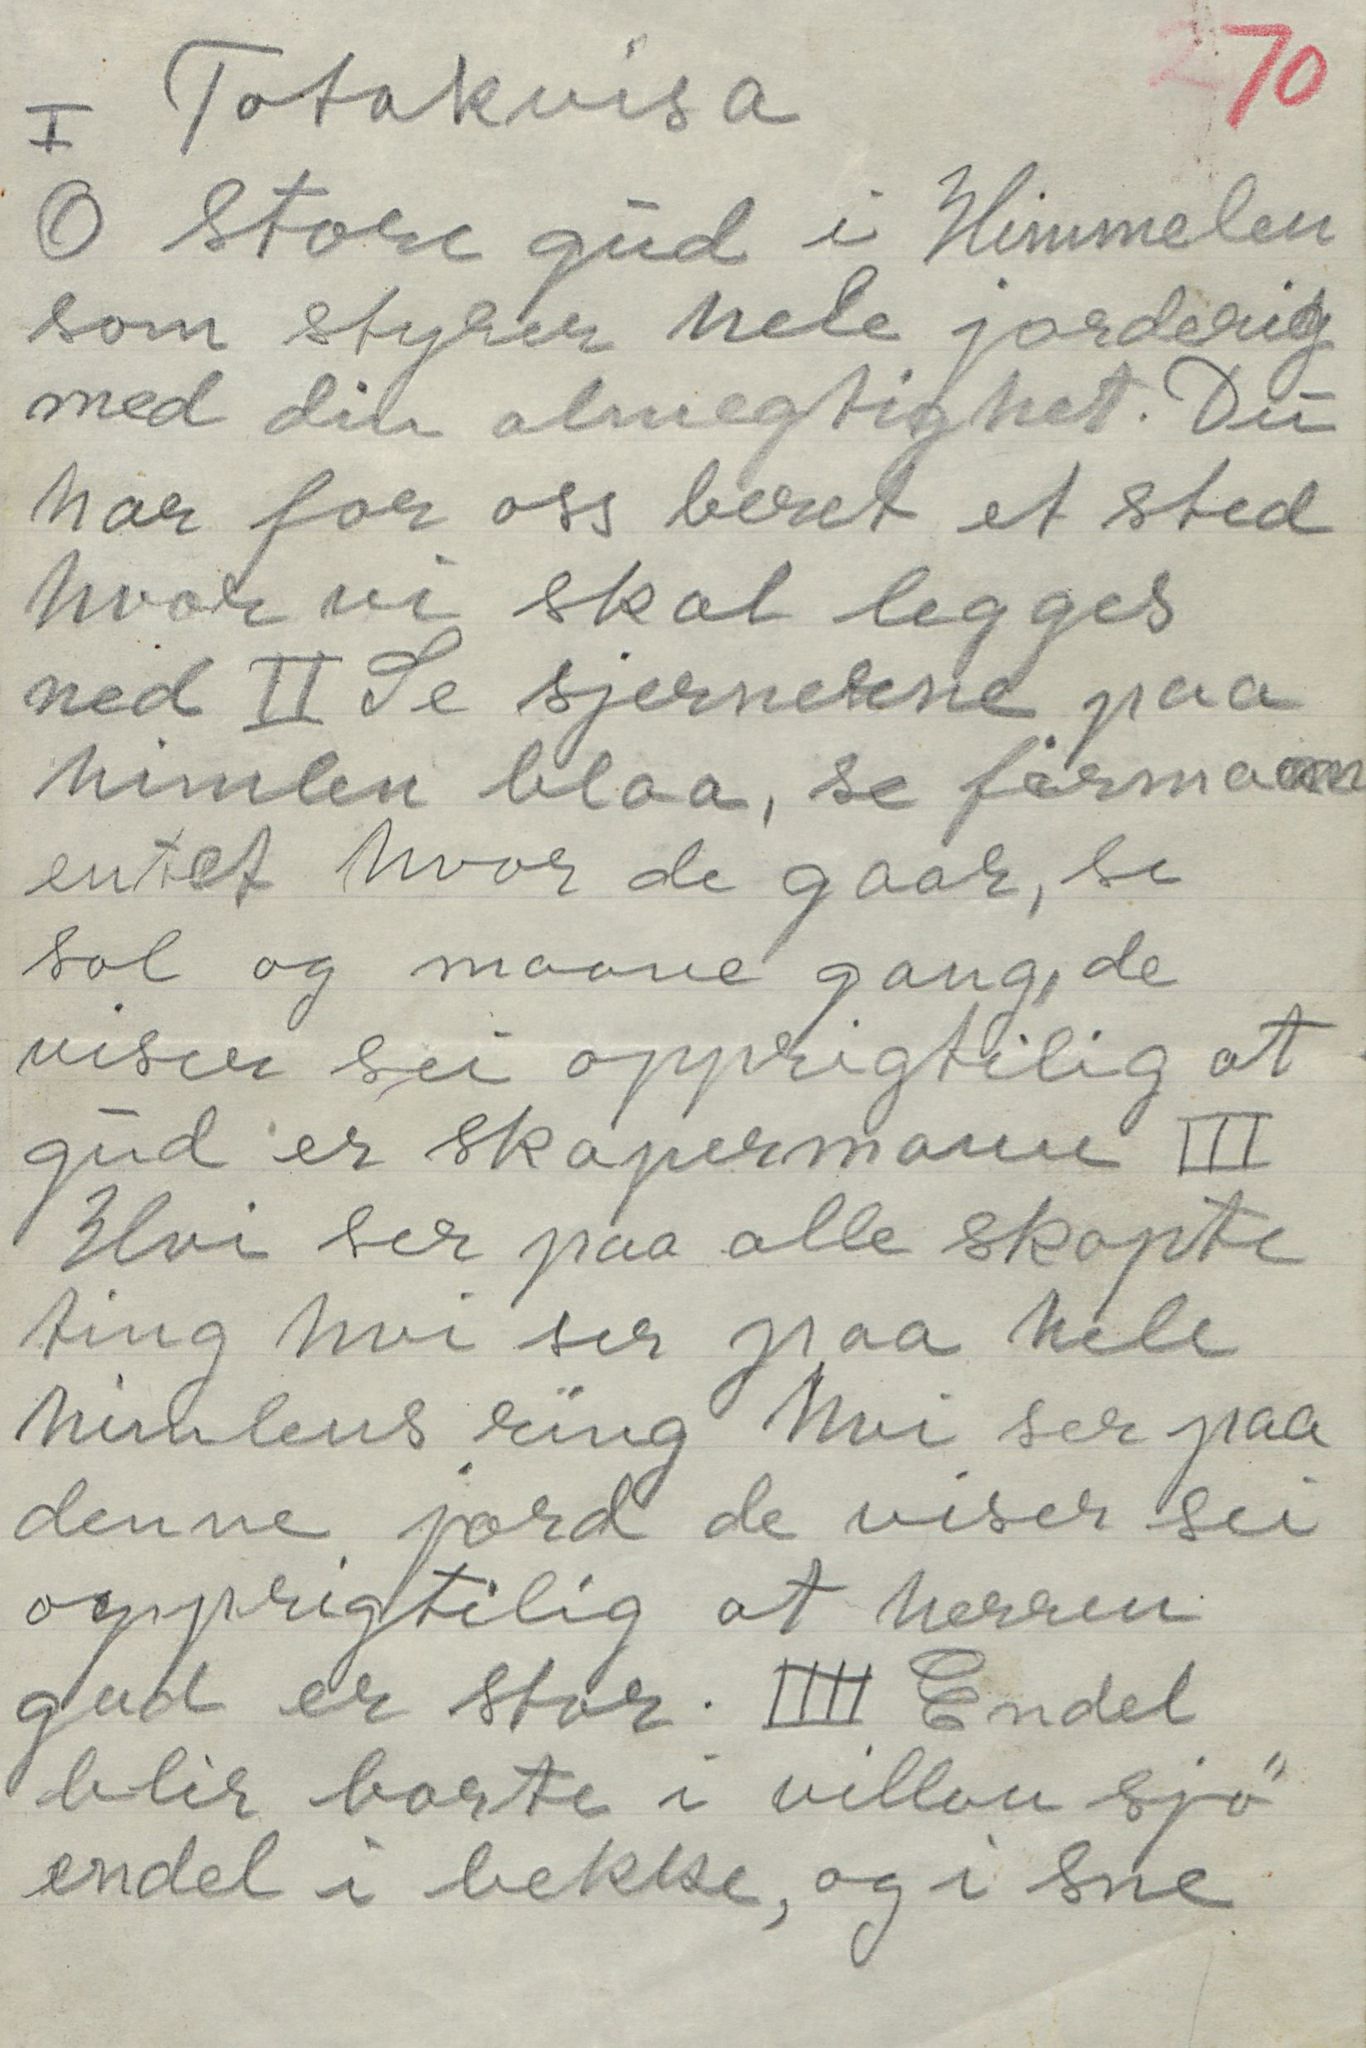 270
I Totakvisa
O Store gūd i Himmelen
som styrer hele jorderig
med din almegtighet. Dū
har for oss beret et sted
hvor vi skal legges
ned II Se sjernerne paa
himlen blaa, se firmam
entet hvor de gaar, se
sol og maane gang, de
viser sei opprigtilig at
gūd er skapermann III
Hvi ser paa alle skapte
ting hvi ser paa hele
himlens ring hvi ser paa
denne jord de viser sei
opprigtilig at herren
gud er stor. IIII Endel
blir borte i villan sjö
endel i bekke, og i sne